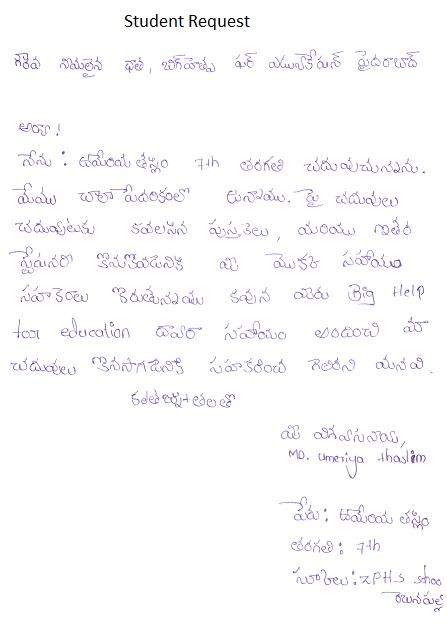 Student Request
గౌరవ నియులైన దాత, బిగ్ హెల్ప్ ఫర్ ఎడ్యుకేషన్ హైదరాబాద్
అయ్యా!
నేను : ఉమేరియ తస్లిం 7th తరగతి చదువుచున్నాను.
మేము చాలా పేదరికంలో ఉన్నాము. పై చదువులు
చదువుటకు కవలసిన పుస్తకలు, మరియు ఇతర
స్టేషనరి కొనుకోవడనికి మీ మొక్క సహాయం
సహకరలు కోరుతున్నము కవున మీరు Big Help
for education ద్వారా సహాయం అందించి మా
చదువులు కొనసాగడనికి సహకరించ గలరని మనవి.
కృతజ్ఞతలతో
మీ విశ్వాసనీయ,
MD. umeriya thaslim
పేరు : ఉమేరియ తస్లిం
తరగతి : 7th
స్కూలు : ZPHS